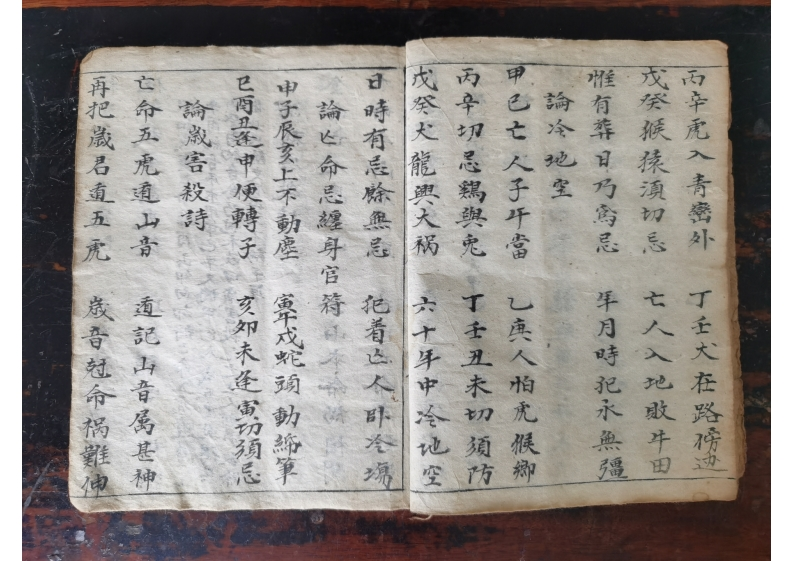 丙辛虎入青巒外 丁壬犬在路傍边
戊癸猴猿須切忌 亡人入地敗牛田
惟有葬日乃為忌 年月時犯永無彊
論冷地空
甲己亡人子午當 乙庚人怕虎猴鄉
丙辛切忌鷄與兎 丁壬丑未切須防
戊癸犬龍興大禍 六十年中冷地空
日時有忌餘無忌 犯着亡人卧冷塲
論亡命忌纏身官符
申子辰亥上不動塵 寅午戌蛇頭動締筆
巳酉丑逢申便轉子 亥卯未逢寅切須忌
論歲害殺詩
亡命五虎遁山音 遁記山音属甚神
再把歲君遁五虎 歲音尅命禍難伸